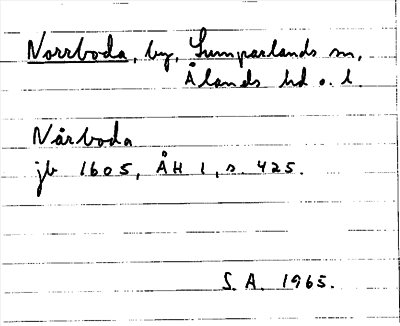 Norrboda, by, Lumparlands sn,
Ålands hd o. l.
Nårboda
jb 1605, ÅH 1, s. 425.
S. A. 1965.